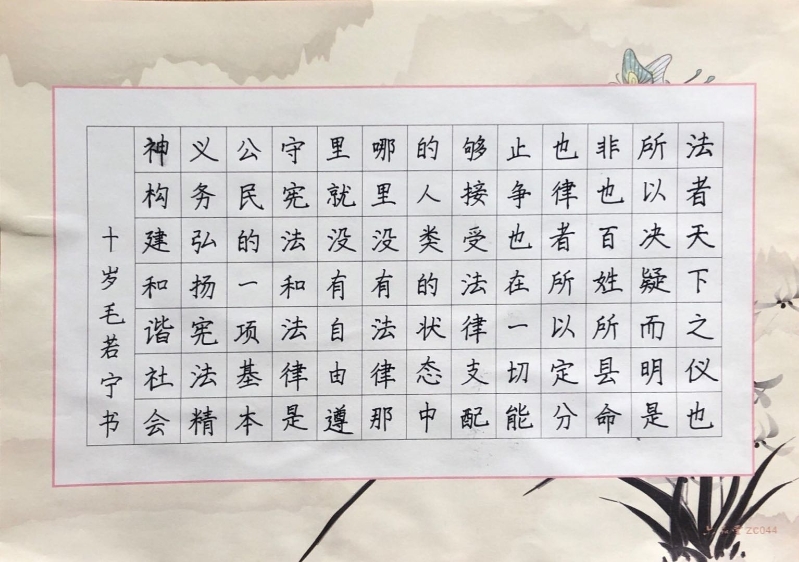 法者天下之仪也
所以决疑而明是
非也百姓所县命
也律者所以定分
止争也在一切能
够接受法律支配
的人类的状态中
哪里没有法律那
里就没有自由遵
守宪法和法律是
公民的一项基本
义务弘扬宪法精
神构建和谐社会
十岁毛若宁书
ZC044